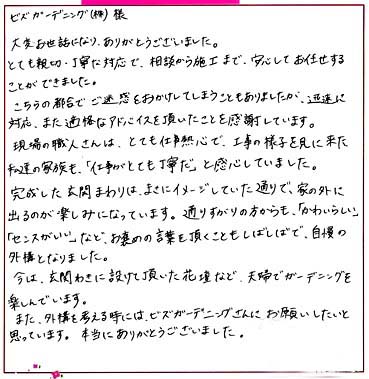 ビズガーデニング(株)様
大変お世話になり、ありがとうございました。
とても親切・丁寧な対応で、相談から施工まで、安心してお任せする
ことができました。
こちらの都合でご迷惑をおかけしてしまうこともありましたが、迅速に
対応、また適格なアドバイスを頂いたことを感謝しています。
現場の職人さんは、とても仕事熱心で、工事の様子を見に来た
私達の家族も、「仕事がとても丁寧だ」と感心していました。
完成した玄関まわりは、まさにイメージしていた通りで、家の外に
出るのが楽しみになっています。通りすがりの方からも、「かわいらしい」
「センスがいい」など、お褒めの言葉を頂くこともしばしばで、自慢の
外構となりました。
今は、玄関わきに設けて頂いた花壇など、夫婦でガーデニングを
楽しんでいます。
また、外構を考える時には、ビズガーデニングさんにお願いしたいと
思っています。本当にありがとうございました。